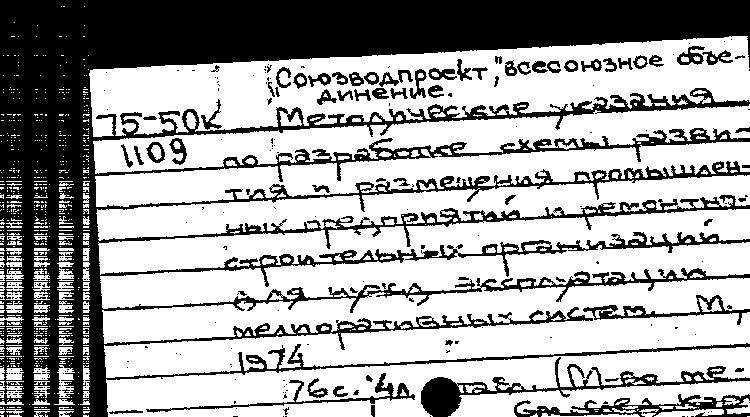 "Союзводпроект", всесоюзное объе-
динение.
75-50к Методические указания
1109 по разработке схемы разви-
тия и размещения промышлен-
ных предприятий и ремонтно-
строительных организаций
для нужд эксплуатации
мелиоративных систем. М.,
1974
76 с. 4л. табл. (М-во ме-
См. след. карт